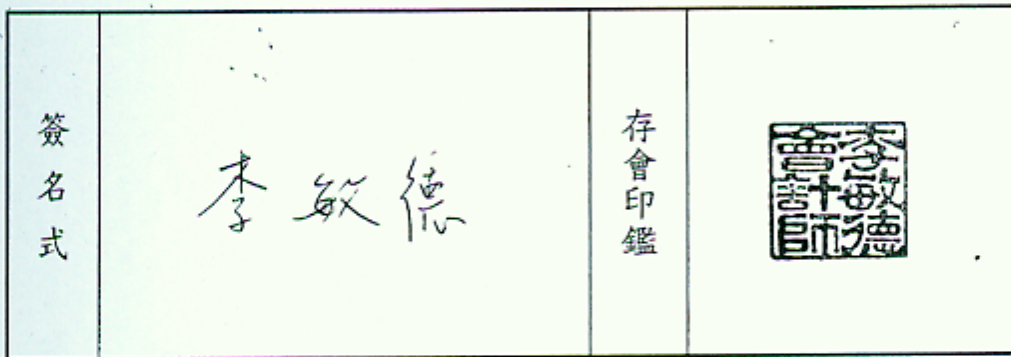 簽名式
李敏德
存會印鑑
李敏德
會計師